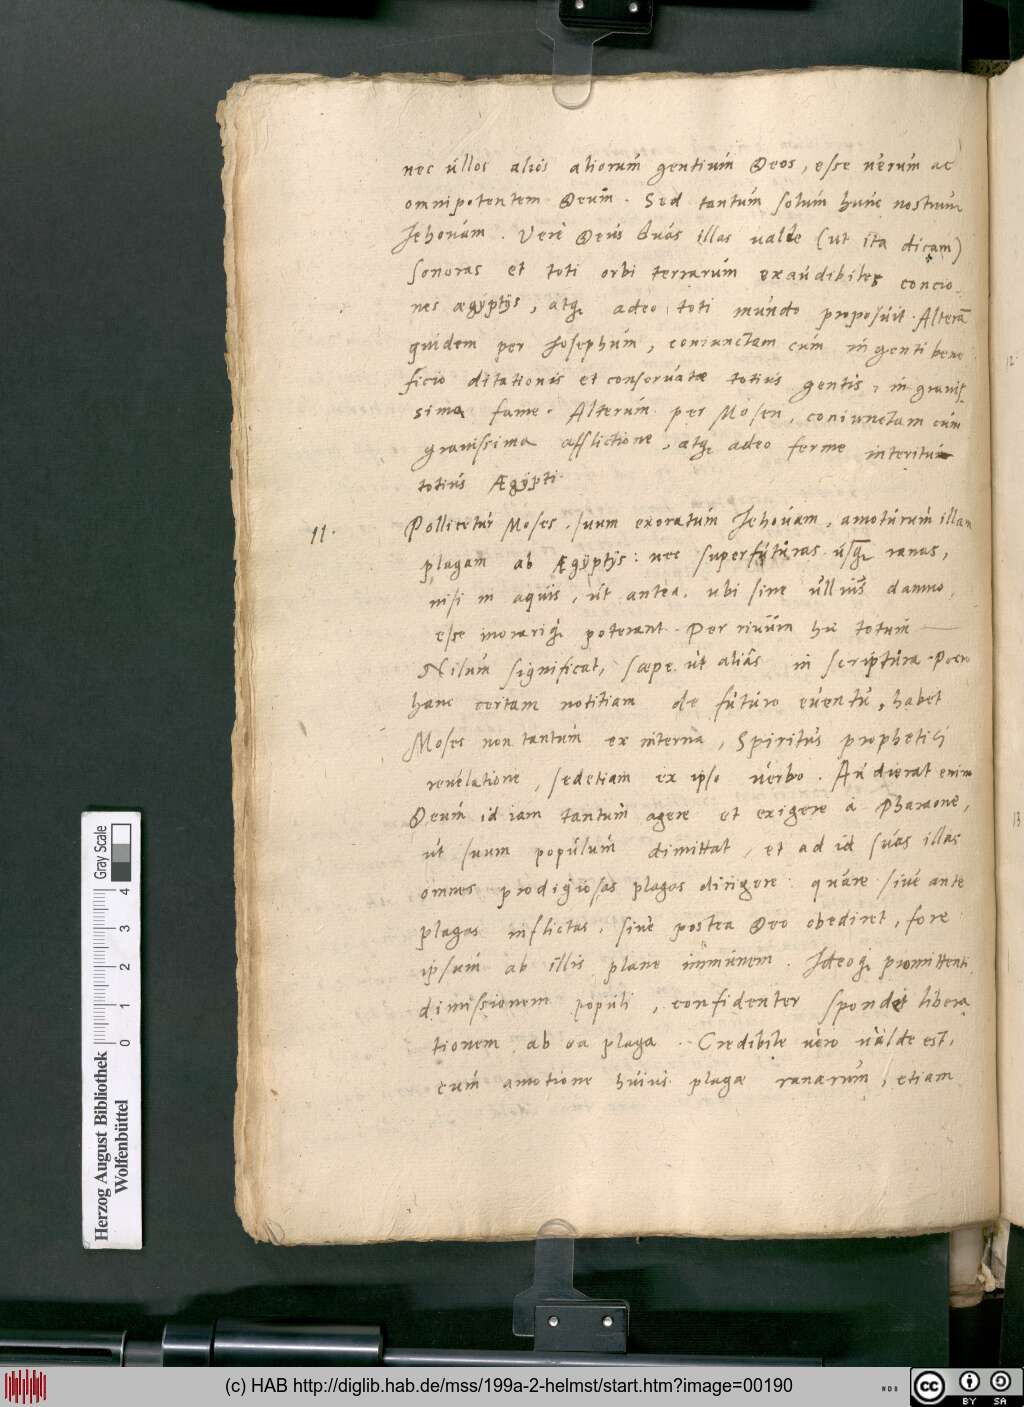 nec ullos aliós aliorum gentium Deos, esse verum ac
omnipotentem Deum. Sed tantum solum hunc nostrum
Jehovam. Verè Deus duas illas valde (ut ita dicam)
sonoras et toti orbi terrarum exaudibiles concio-
nes ægÿptijs, atq; adeo toti mundo proposuit. Alterã
quidem per Josephum, coniunctam cum ingenti bene
ficio ditationis et conservatæ totius gentis, in gravis
sima fame. Alterum per Mosen, coniunctam cum
gravissima afflictione, atq; adeo ferme interitum
totius Ægÿpti.
11. Pollicetur Moses, suum exoratum Jehovam, amoturum illam
plagam ab Ægÿptijs: nec superfuturas usq; ranas,
nisi in aquis, ut antea, ubi sine ullius damno
esse morariq; poterant. Per rivum hic totum
Nilum significat, sæpe ut aliâs in scriptura. Porro
hanc certam notitiam de futuro eventu, habet
Moses non tantum ex interna, Spiritus prophetici
revelatione, sed etiam ex ipso verbo. Audierat enim
Deum id iam tantum agere et exigere à Pharaone,
ut suum populum dimittat, et ad id suas illas
omnes prodigiosas plagas dirigere: quare sive ante
plagas inflictas, sive postea Deo obediret, fore
ipsum ab illis plane immunem. Ideoq; promittenti
dimissionem populi, confidenter spondet libera
tionem ab ea plaga. Credibile vero valde est,
cum amotione huius plagæ ranarum, etiam
12
13
Herzog August Bibliothek
Wolfenbüttel
0 1 2 3 4
Gray Scale
(c) HAB http://diglib.hab.de/mss/199a-2-helmst/start.htm?image=00190
NDB
CC BY SA